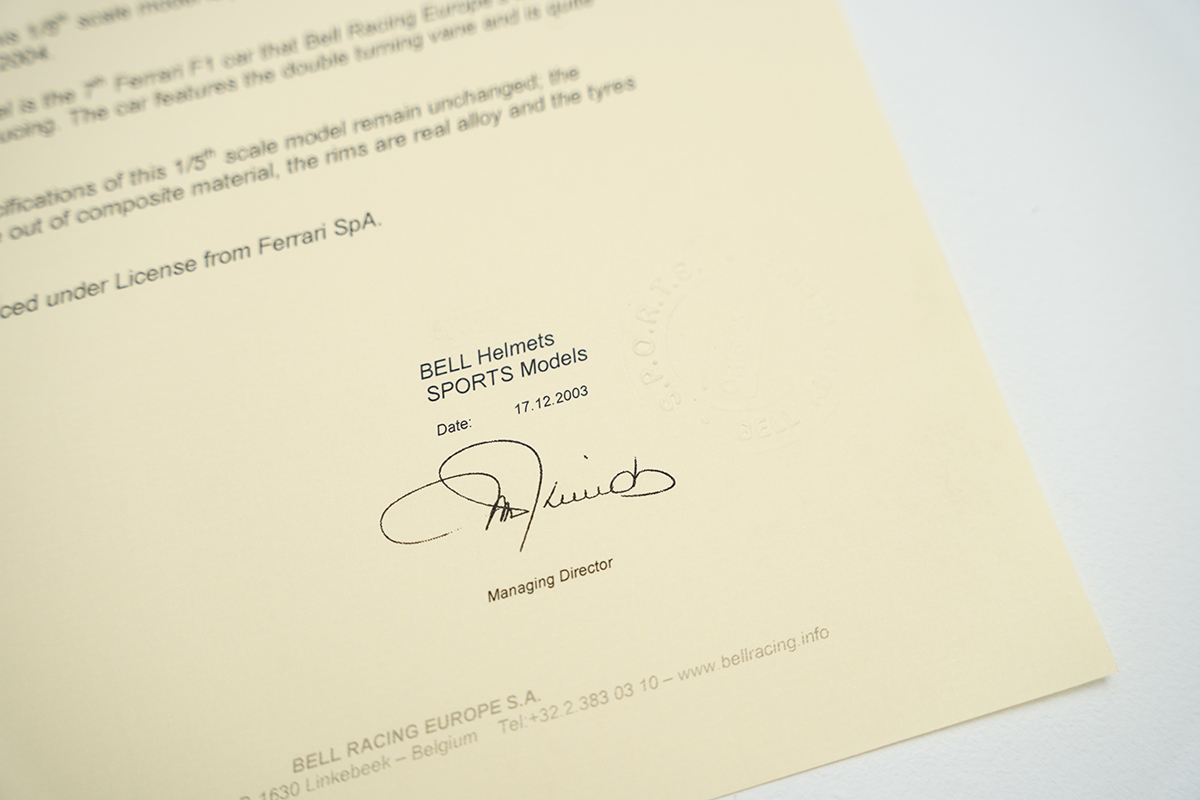 1/5th scale model
2004.
is the 7th Ferrari F1 car that Bell Racing Europe
The car features the double turning vane and is quite
of this 1/5th scale model remain unchanged; the
out of composite material, the rims are real alloy and the tyres
under License from Ferrari SpA.
BELL Helmets
SPORTS Models
Date: 17.12.2003
S.P.O.R.T.S.
BELL
Managing Director
BELL RACING EUROPE S.A.
1630 Linkebeek – Belgium Tel:+32.2.383 03 10 – www.bellracing.info